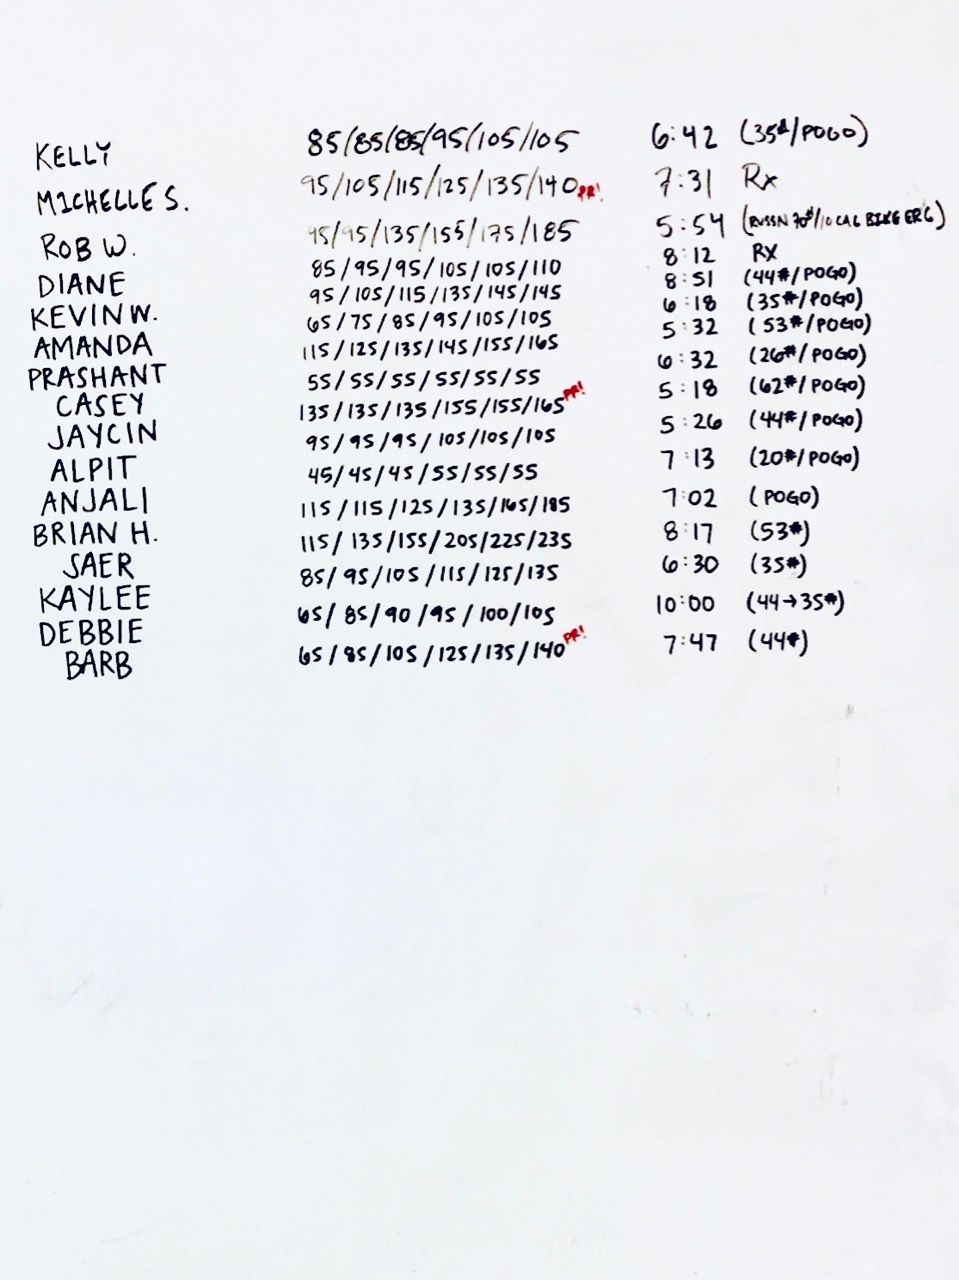 KELLY 85/85/85/95/105/105 6:42 (35#/POGO)
MICHELLE S. 95/105/115/125/135/140 PR! 7:31 Rx
ROB W. 95/95/135/155/175/185 5:54 (RUSSN 70#/10 CAL BIKE ERG)
DIANE 85/95/95/105/105/110 8:12 RX
KEVIN W. 95/105/115/135/145/145 8:51 (44#/POGO)
AMANDA 65/75/85/95/105/105 6:18 (35#/POGO)
PRASHANT 115/125/135/145/155/165 5:32 (53#/POGO)
CASEY 55/55/55/55/55/55 6:32 (26#/POGO)
JAYCIN 135/135/135/155/155/165 PR! 5:18 (62#/POGO)
ALPIT 95/95/95/105/105/105 5:26 (44#/POGO)
ANJALI 45/45/45/55/55/55 7:13 (20#/POGO)
BRIAN H. 115/115/125/135/165/185 7:02 (POGO)
SAER 115/135/155/205/225/235 8:17 (53#)
KAYLEE 85/95/105/115/125/135 6:30 (35#)
DEBBIE 65/85/90/95/100/105 10:00 (44→35#)
BARB 65/85/105/125/135/140 PR! 7:47 (44#)